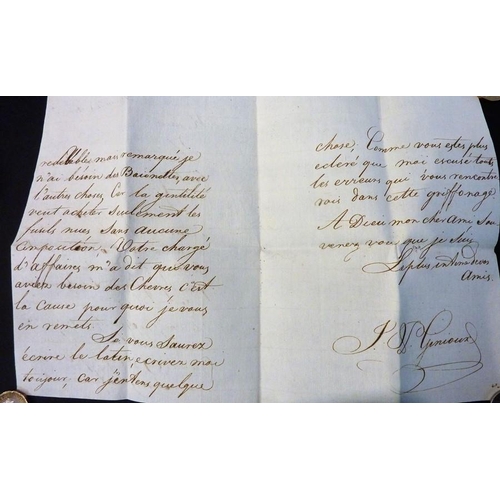 redevables mais remarqué je
n'ai besoin des Baionettes avec
l'autres choses Car la gentilité
veut acheter seulement les
fusils nues Sans aucune
composition. Votre chargé
d'affaires m'a dit que vous
avete besoin des Chevres c'ést
la Cause pour quoi je vous
en remets.
Si vous Saurez
écrire le latin, ecrivez moi
toujour, car j'entens quelque
chose, Comme vous estes plus
ecleré que moi escusé touts
les erreurs qui vous rencontre
roi dans cette griffonage
A Dieu mon cher Ami Sou
venez vous que je Suis
Le plus intime de vos
Amis.
Ginioux